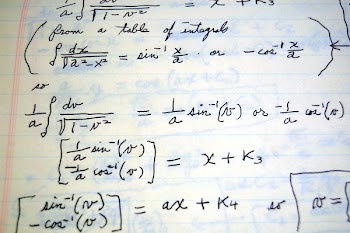 1/a ∫ dv/√(1-v²) = x + K₃
(from a table of integrals
∫ dx/√(a²-x²) = sin⁻¹ x/a · or -cos⁻¹ x/a )
so
1/a ∫ dv/√(1-v²) = 1/a sin⁻¹(v) or -1/a cos⁻¹(v)
[1/a sin⁻¹(v)
-1/a cos⁻¹(v)] = x + K₃
[sin⁻¹(v)
-cos⁻¹(v)] = ax + K₄ so v =